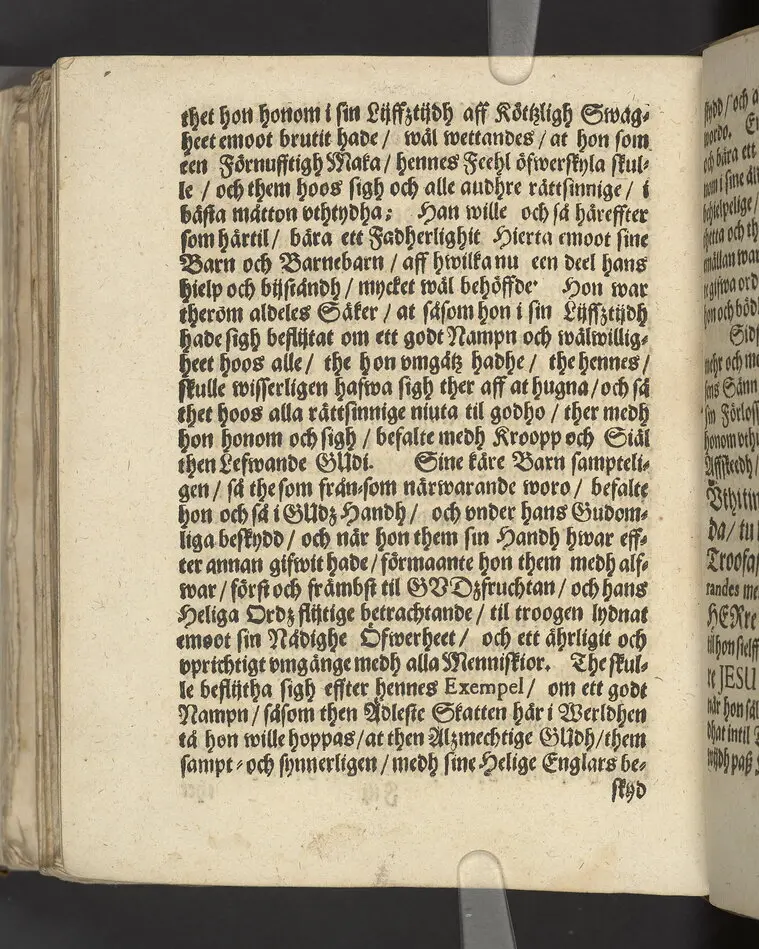 thet hon honom i sin Lijffztijdh aff Köttzligh Swag-
heet emoot brutit hade / wäl wettandes / at hon som
een Förnufftigh Maka / hennes Feehl öfwerskyla skul-
le / och them hoos sigh och alle audhre rättsinnige / i
bästa måtton vthtydha; Han wille och så häreffter
som härtil / bära ett Fadherlighit Hierta emoot sine
Barn och Barnebarn / aff hwilka nu een deel hans
hielp och bijståndh / mycket wäl behöffde. Hon war
theröm aldeles Säker / at såsom hon i sin Lijffztijdh
hade sigh beflijtat om ett godt Nampn och wälwillig-
heet hoos alle / the hon vmgåtz hadhe / the hennes /
skulle wisserligen hafwa sigh ther aff at hugna / och så
thet hoos alla rättsinnige niuta til godho / ther medh
hon honom och sigh / befalte medh Kroopp och Siäl
then Lefwande GUdi. Sine käre Barn sampteli-
gen / så the som från-som närwarande woro / befalte
hon och så i GUdz Handh / och vnder hans Gudom-
liga beskydd / och när hon them sin Handh hwar eff-
ter annan gifwit hade / förmaante hon them medh alf-
war / först och främbst til GVDzfruchtan / och hans
Heliga Ordz flijtige betrachtande / til troogen lydnat
emoot sin Nådighe Öfwerheet / och ett ährligit och
vprichtigt vmgänge medh alla Menniskior. The skul-
le beflijtha sigh effter hennes Exempel / om ett godt
Nampn / såsom then Ädleste Skatten här i Werldhen
tå hon wille hoppas / at then Alzmechtige GUdh / them
sampt- och synnerligen / medh sine Helige Englars be-
skyd